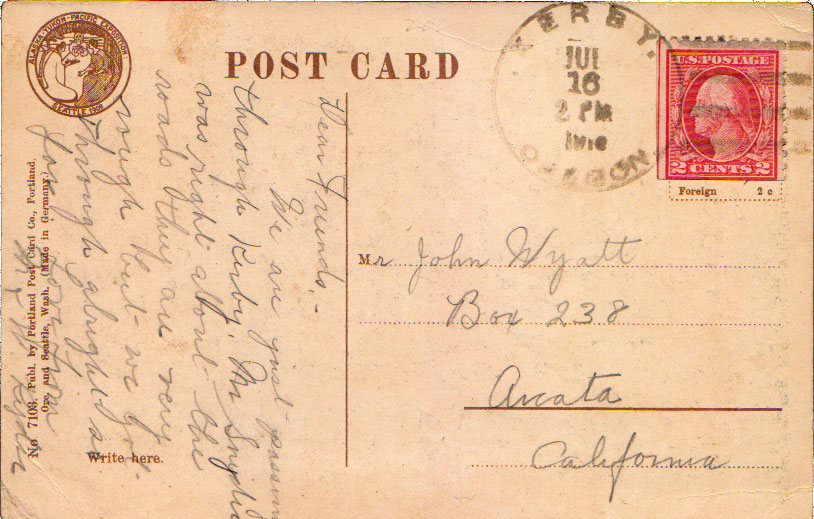 ALASKA-YUKON-PACIFIC EXPOSITION
SEATTLE 1909
POST CARD
KERBY.
JUL
16
2 PM
OREGON
U.S. POSTAGE
2 CENTS 2
Foreign 2 c
Dear Friends. -
We are just passin
through Kerby. Mr
was right about the
roads they are very
rough but we got
through alright
far
Mr John Wyatt
Box 238
Arcata
California
No 7103. Publ. by Portland Post Card Co., Portland,
Ore. and Seattle, Wash. (Made in Germany.)
Write here.